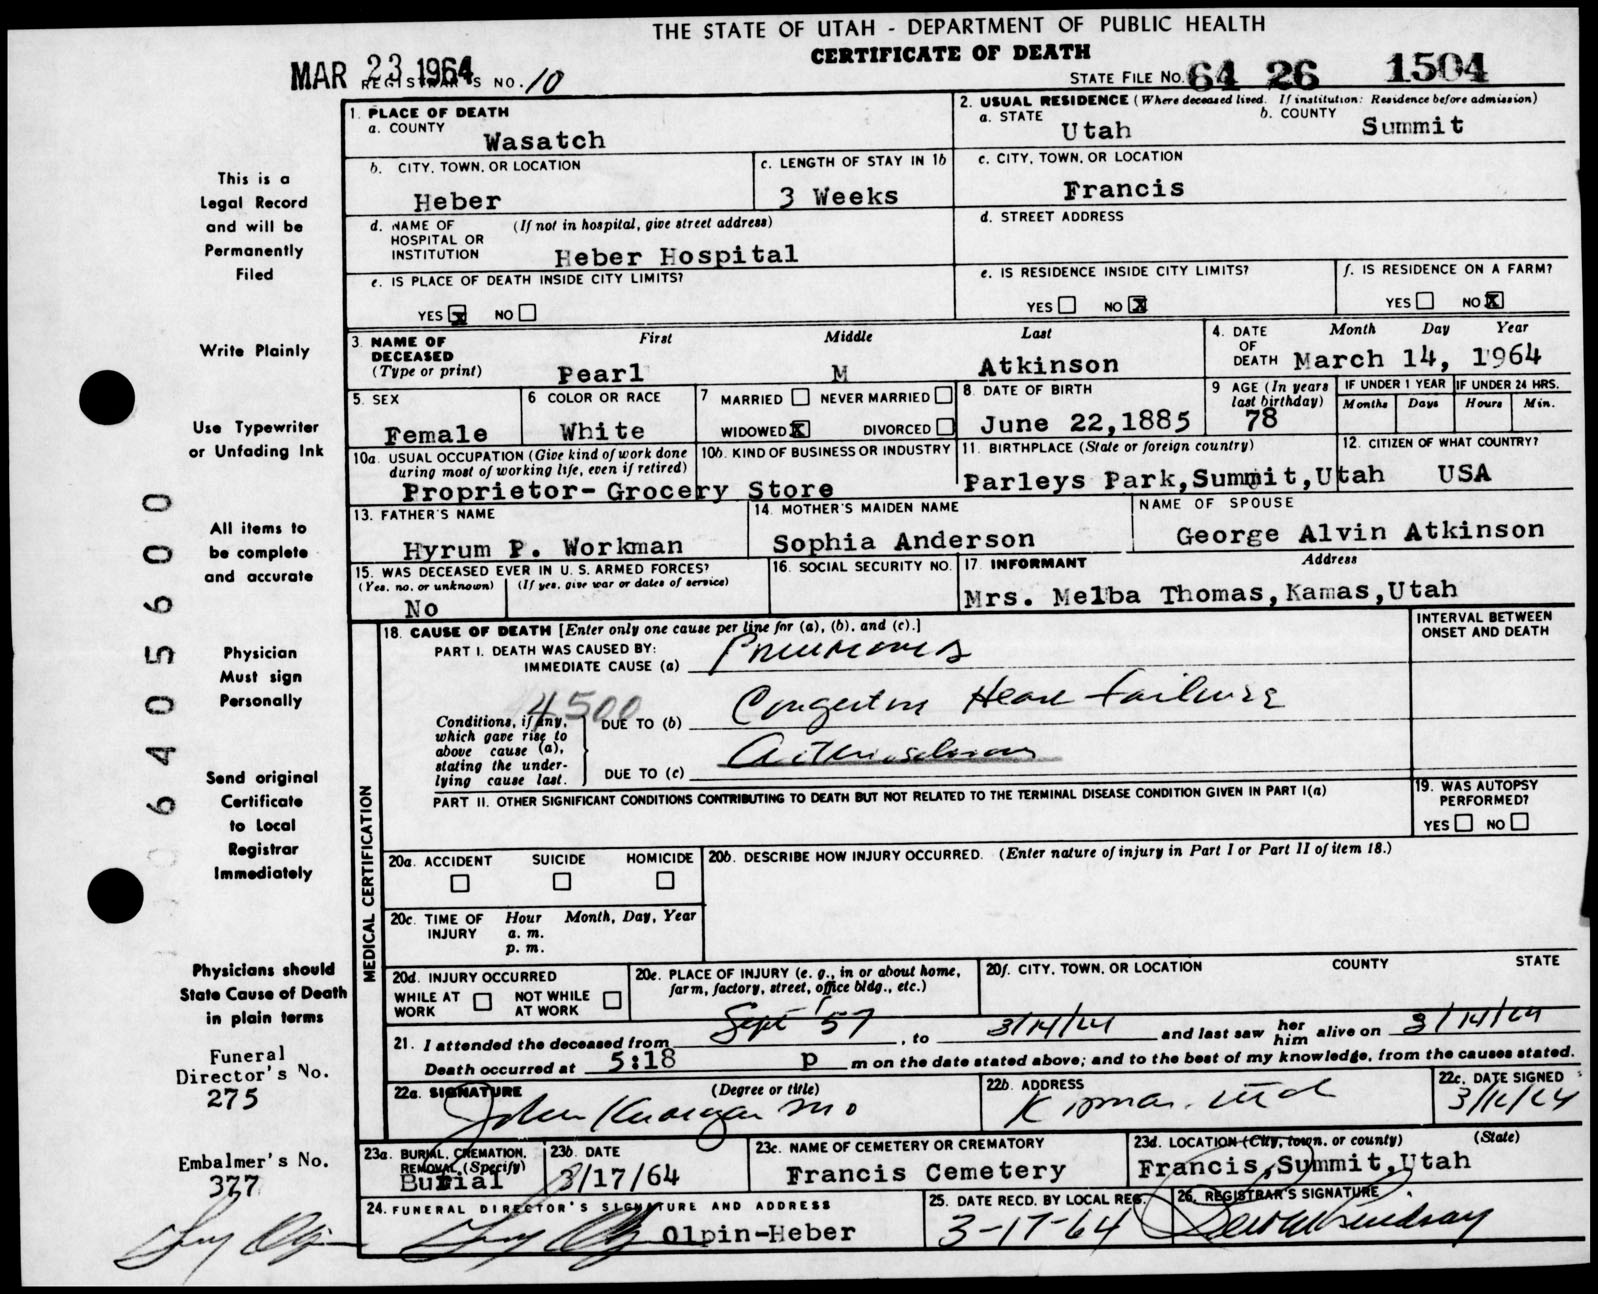 THE STATE OF UTAH - DEPARTMENT OF PUBLIC HEALTH
CERTIFICATE OF DEATH
MAR 23 1964
REGISTRAR'S NO. 10
STATE FILE NO. 64 26 1504
1. PLACE OF DEATH
a. COUNTY
Wasatch
2. USUAL RESIDENCE (Where deceased lived. If institution: Residence before admission)
a. STATE
Utah
b. COUNTY
Summit
b. CITY, TOWN, OR LOCATION
Heber
c. LENGTH OF STAY IN 1b
3 Weeks
c. CITY, TOWN, OR LOCATION
Francis
d. NAME OF HOSPITAL OR INSTITUTION
(If not in hospital, give street address)
Heber Hospital
d. STREET ADDRESS
e. IS PLACE OF DEATH INSIDE CITY LIMITS?
YES x NO
e. IS RESIDENCE INSIDE CITY LIMITS?
YES NO X
f. IS RESIDENCE ON A FARM?
YES NO X
3. NAME OF DECEASED (Type or print)
First Middle Last
Pearl M Atkinson
4. DATE OF DEATH
Month Day Year
March 14, 1964
5. SEX
Female
6 COLOR OR RACE
White
7 MARRIED NEVER MARRIED
WIDOWED X DIVORCED
8. DATE OF BIRTH
June 22,1885
9 AGE (In years last birthday)
78
IF UNDER 1 YEAR
Months Days
IF UNDER 24 HRS.
Hours Min.
10a. USUAL OCCUPATION (Give kind of work done during most of working life, even if retired)
10b. KIND OF BUSINESS OR INDUSTRY
Proprietor-Grocery Store
11. BIRTHPLACE (State or foreign country)
Parleys Park,Summit,Utah
12. CITIZEN OF WHAT COUNTRY?
USA
13. FATHER'S NAME
Hyrum P. Workman
14. MOTHER'S MAIDEN NAME
Sophia Anderson
NAME OF SPOUSE
George Alvin Atkinson
15. WAS DECEASED EVER IN U.S. ARMED FORCES?
(Yes, no, or unknown) (If yes, give war or dates of service)
No
16. SOCIAL SECURITY NO.
17 INFORMANT Address
Mrs. Melba Thomas,Kamas,Utah
MEDICAL CERTIFICATION
18. CAUSE OF DEATH [Enter only one cause per line for (a), (b), and (c).]
INTERVAL BETWEEN ONSET AND DEATH
PART I. DEATH WAS CAUSED BY:
IMMEDIATE CAUSE (a) Pneumonia
4500
Conditions, if any, which gave rise to above cause (a), stating the underlying cause last.
DUE TO (b) Congestive Heart Failure
DUE TO (c)
PART II. OTHER SIGNIFICANT CONDITIONS CONTRIBUTING TO DEATH BUT NOT RELATED TO THE TERMINAL DISEASE CONDITION GIVEN IN PART I(a)
19. WAS AUTOPSY PERFORMED?
YES NO
20a. ACCIDENT SUICIDE HOMICIDE
20b. DESCRIBE HOW INJURY OCCURRED. (Enter nature of injury in Part I or Part II of item 18.)
20c. TIME OF INJURY
Hour Month, Day, Year
a. m.
p. m.
20d. INJURY OCCURRED
WHILE AT WORK NOT WHILE AT WORK
20e. PLACE OF INJURY (e. g., in or about home, farm, factory, street, office bldg., etc.)
20f. CITY, TOWN, OR LOCATION COUNTY STATE
21. I attended the deceased from Sept '57, to 3/14/64 and last saw her him alive on 3/14/64
Death occurred at 5:18 p m on the date stated above; and to the best of my knowledge, from the causes stated.
22a. SIGNATURE (Degree or title)
John MD
22b. ADDRESS
Kamas, Utah
22c. DATE SIGNED
23a. BURIAL, CREMATION, REMOVAL (Specify)
Burial
23b. DATE
3/17/64
23c. NAME OF CEMETERY OR CREMATORY
Francis Cemetery
23d. LOCATION (City, town, or county) (State)
Francis,Summit,Utah
24. FUNERAL DIRECTOR'S SIGNATURE AND ADDRESS
Olpin-Heber
25. DATE RECD. BY LOCAL REG.
3-17-64
26. REGISTRAR'S SIGNATURE
Lindsay
This is a
Legal Record
and will be
Permanently
Filed
Write Plainly
Use Typewriter
or Unfading Ink
All items to
be complete
and accurate
Physician
Must sign
Personally
Send original
Certificate
to Local
Registrar
Immediately
Physicians should
State Cause of Death
in plain terms
Funeral
Director's No.
275
Embalmer's No.
377
6405600